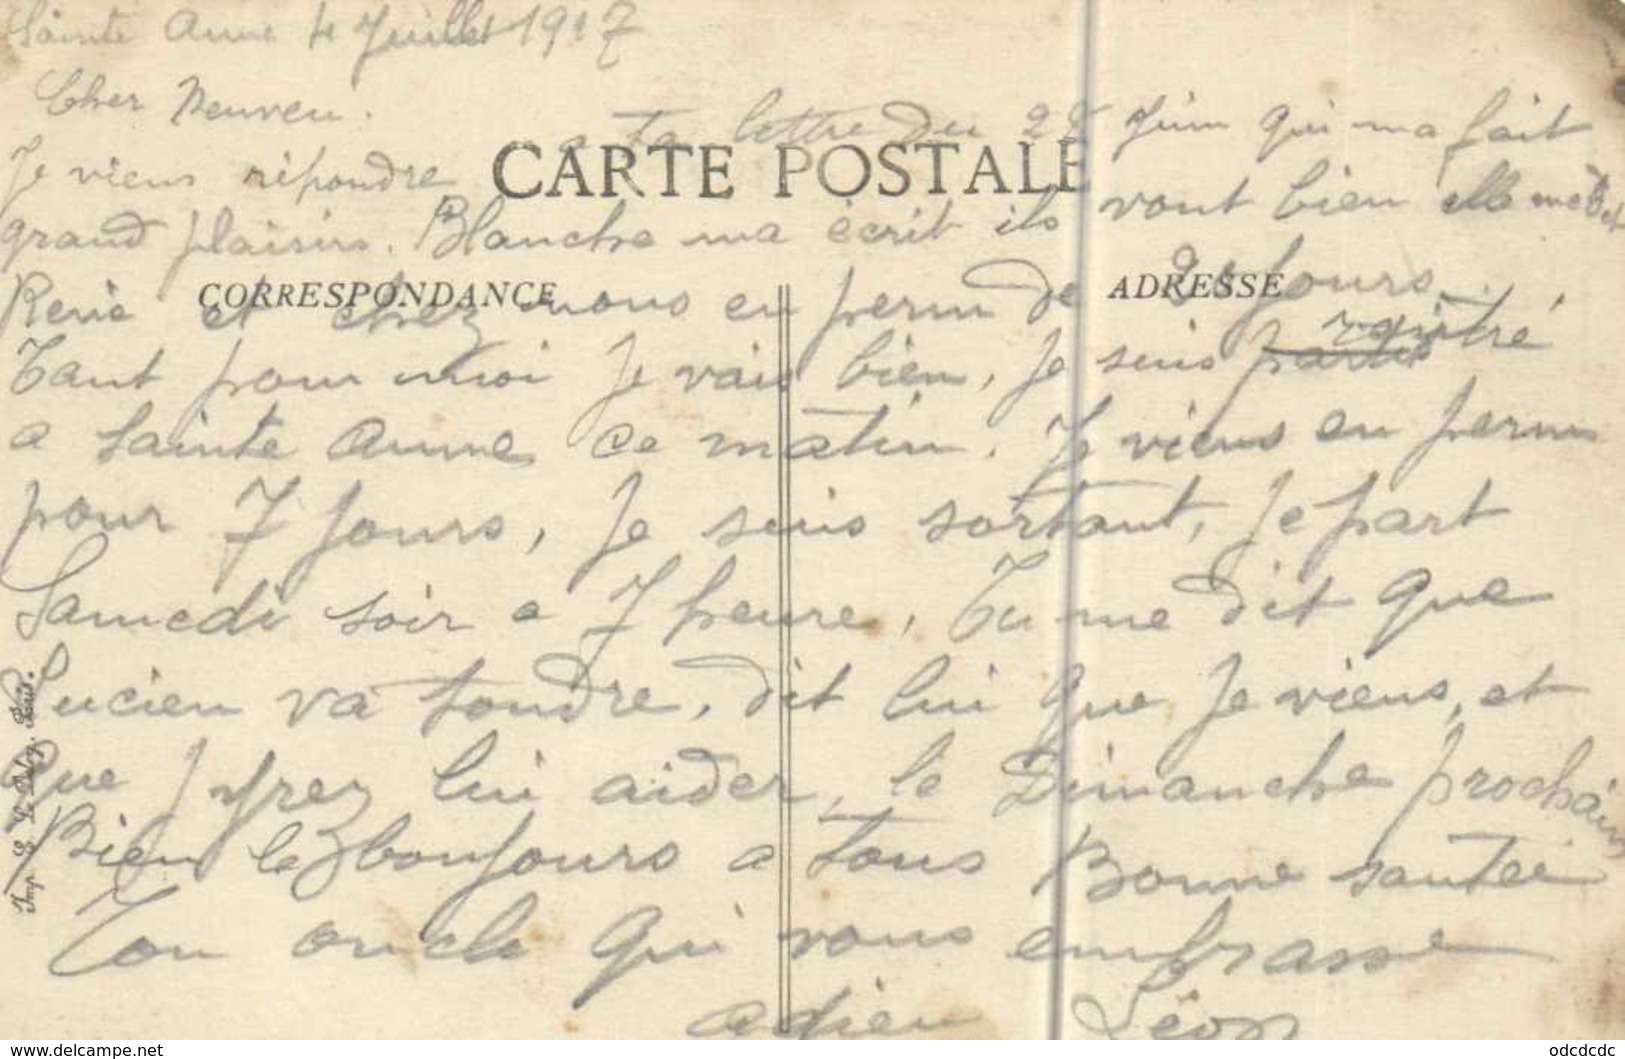 Sainte Anne 4 Juillet 1917
Cher Neuveu.
Je viens répondre a Ta lettre du 28 Juin qui ma fait
CARTE POSTALE
grand plaisirs. Blanche ma écrit ils vont bien elle me dit
CORRESPONDANCE
ADRESSE
René et chez nous en perm de 21 Jours.
Tant pour moi Je vais bien, Je suis partis rentré
a Sainte Anne ce matin. Je viens en perm
pour 7 Jours, Je suis sortant, Je part
Samedi soir a 7 heure, Tu me dit que
Lucien va tondre, dit lui que Je viens, et
que J'yrez lui aider, le Dimanche prochain
Bien lez bonjours a tous Bonne santée
Ton oncle qui vous embrasse
adieu Léon
Imp. E. Le Deley, Paris.
www.delcampe.net
odcdcdc